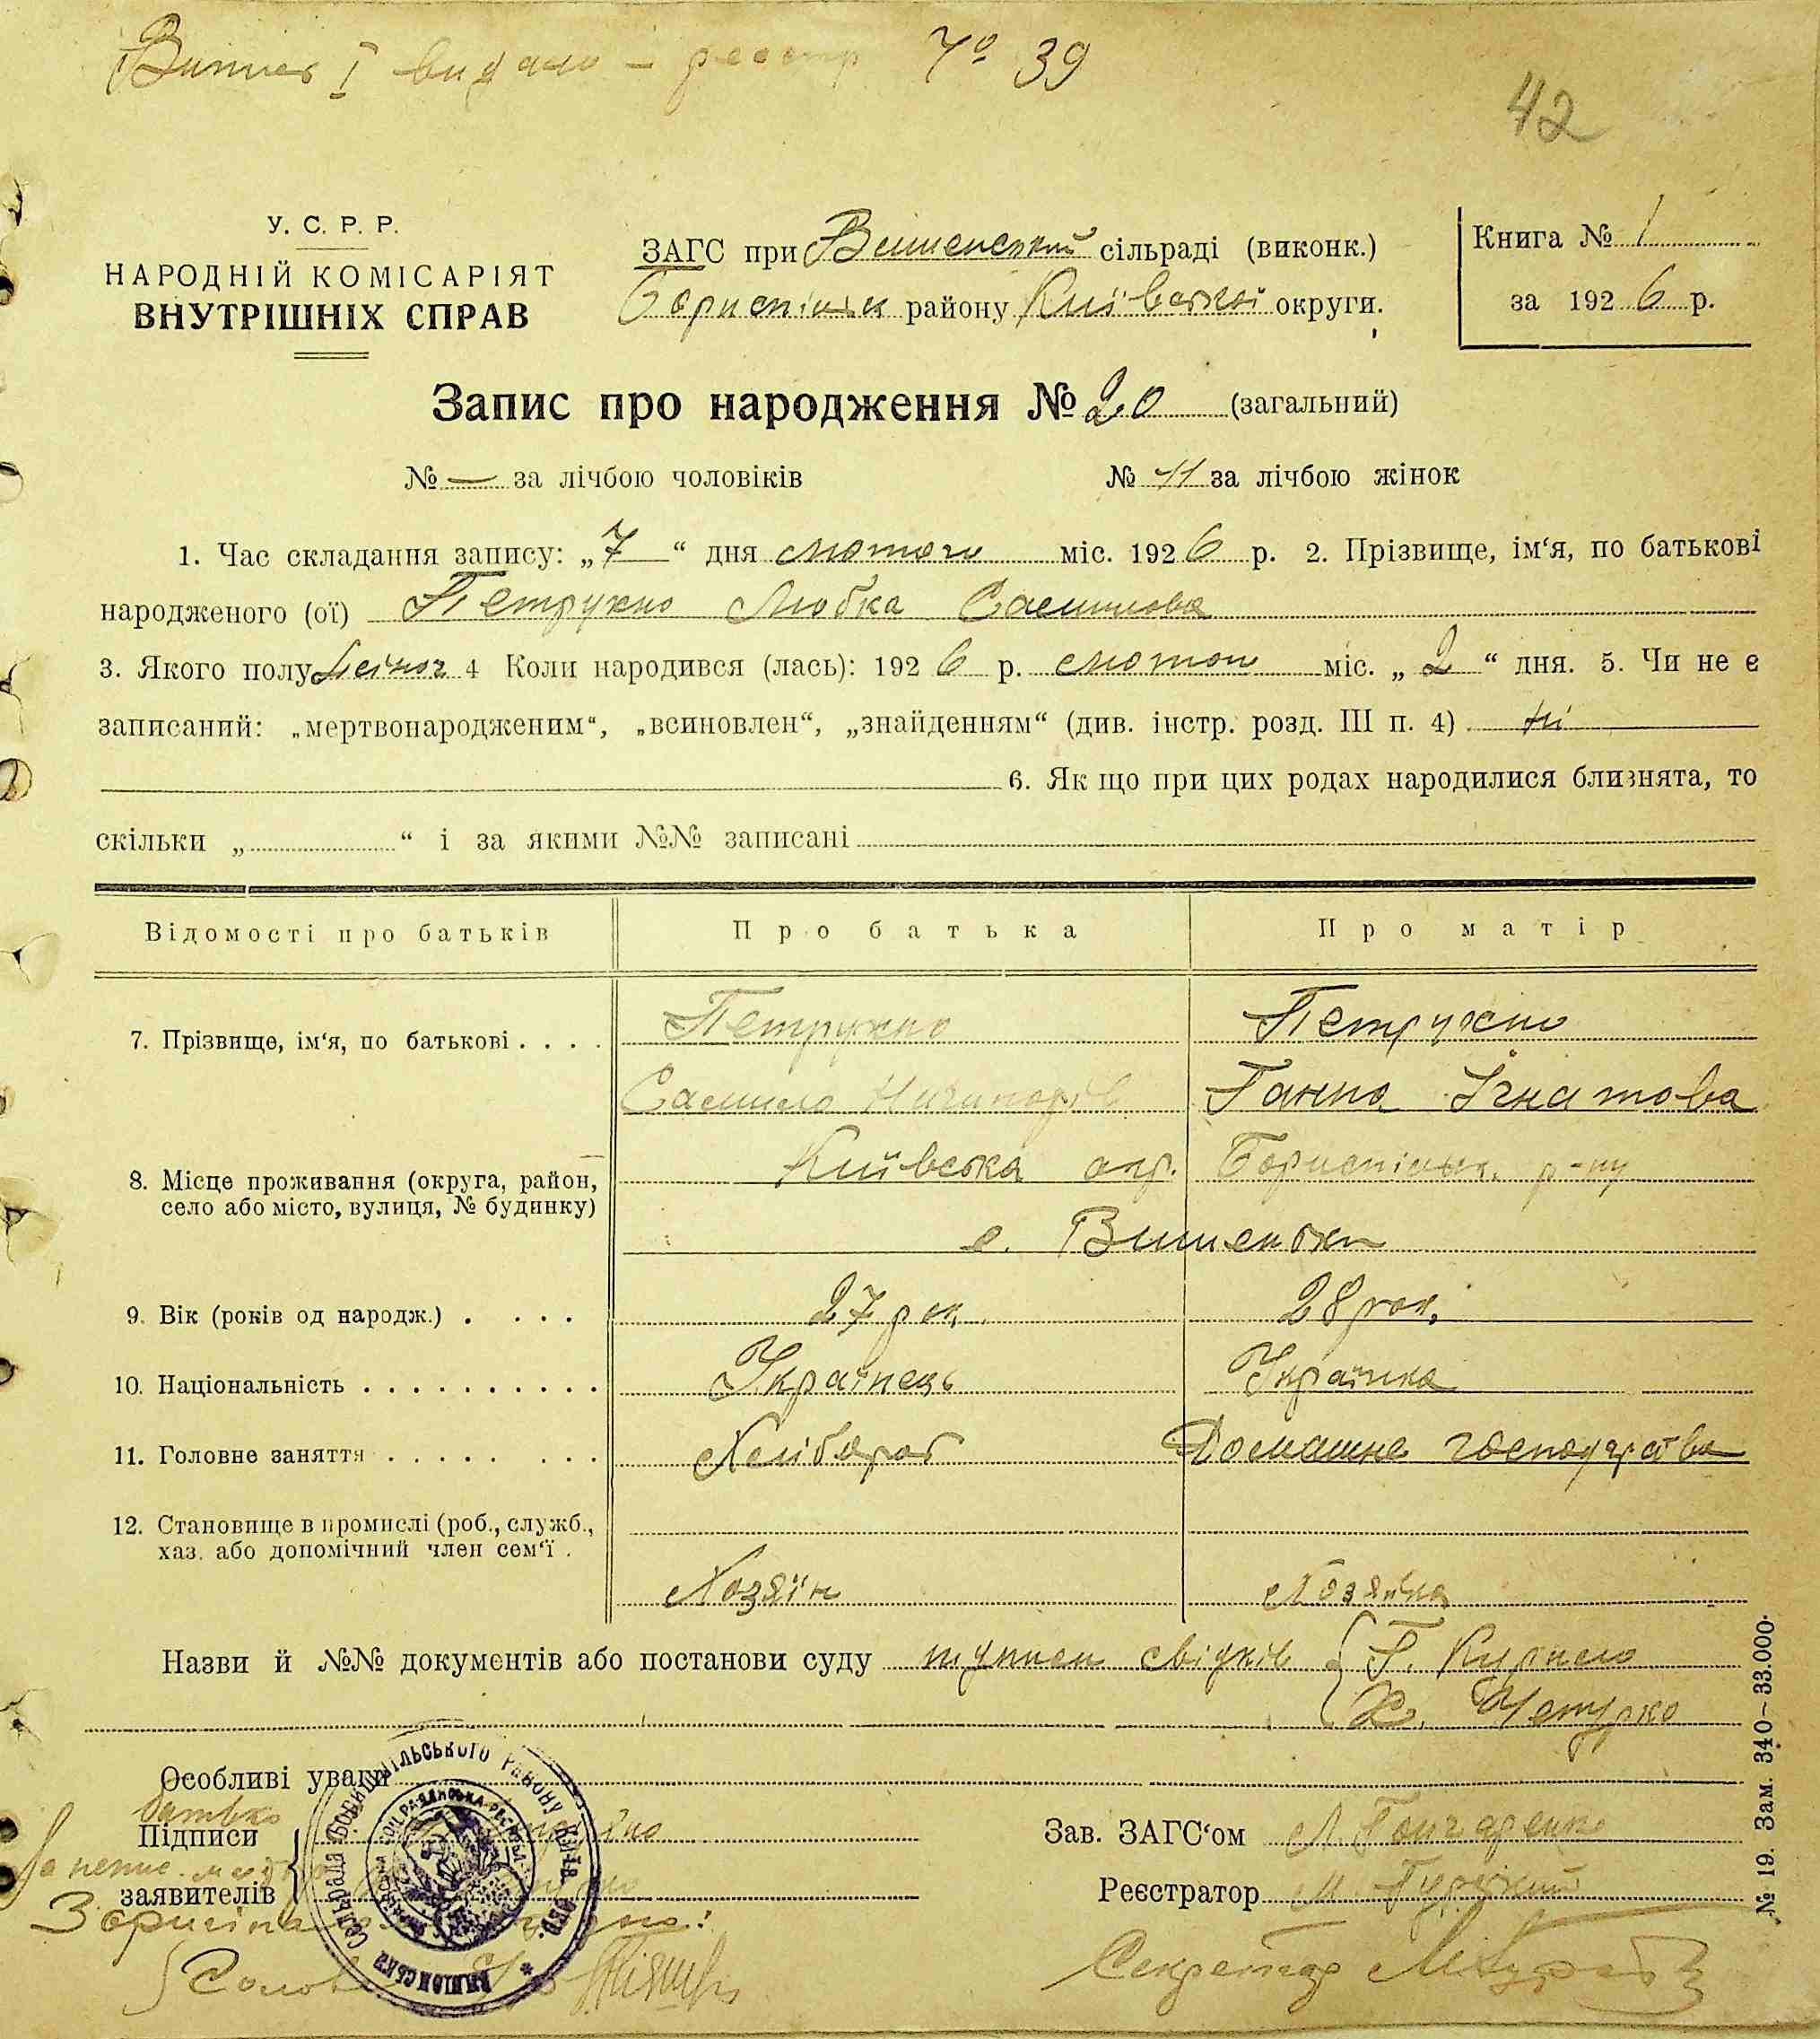 Витяг I видано – реєстр № 39
42
У. С. Р. Р.
НАРОДНІЙ КОМІСАРІЯТ
ВНУТРІШНІХ СПРАВ
ЗАГС при Вишенській сільраді (виконк.)
Бориспільск району Київської округи.
Книга № 1
за 1926 р.
Запис про народження № 20 (загальний)
№ — за лічбою чоловіків № 11 за лічбою жінок
1. Час складання запису: „7“ дня лютого міс. 1926 р. 2. Прізвище, ім‘я, по батькові
народженого (ої) Петружно Любка Самилова
3. Якого полу жіноч 4 Коли народився (лась): 1926 р. лютого міс. „2“ дня. 5. Чи не є
записаний: „мертвонародженим“, „всиновлен“, „знайденням“ (див. інстр. розд. III п. 4) ні
6. Як що при цих родах народилися близнята, то
скільки „ “ і за якими №№ записані
Відомості про батьків Про батька Про матір
7. Прізвище, ім‘я, по батькові . . . . Петружно Петружно
Самило Ничипорів Ганна Ігнатова
8. Місце проживання (округа, район, Київська окр. Бориспільск. р-ну
село або місто, вулиця, № будинку)
с. Вишеньки
9. Вік (років од народж.) . . . . 27 рок. 28 рок.
10. Національність . . . . . . . . . . Українець Українка
11. Головне заняття . . . . . . . . Хлібороб Домашнє господарство
12. Становище в промислі (роб., служб.,
хаз. або допомічний член сем‘ї .
Хозяїн Хозяйка
Назви й №№ документів або постанови суду свідків { Г. Курило
Х. Чепурко
Особливі уваги
батько
Підписи
заявителів
Зав. ЗАГС‘ом Л Гончаренко
Реєстратор М
З оригіналом згідно:
Голова с/р
Секретар
сільрада Бориспільського району Київ. окр.
№ 19. Зам. 340–33.000.